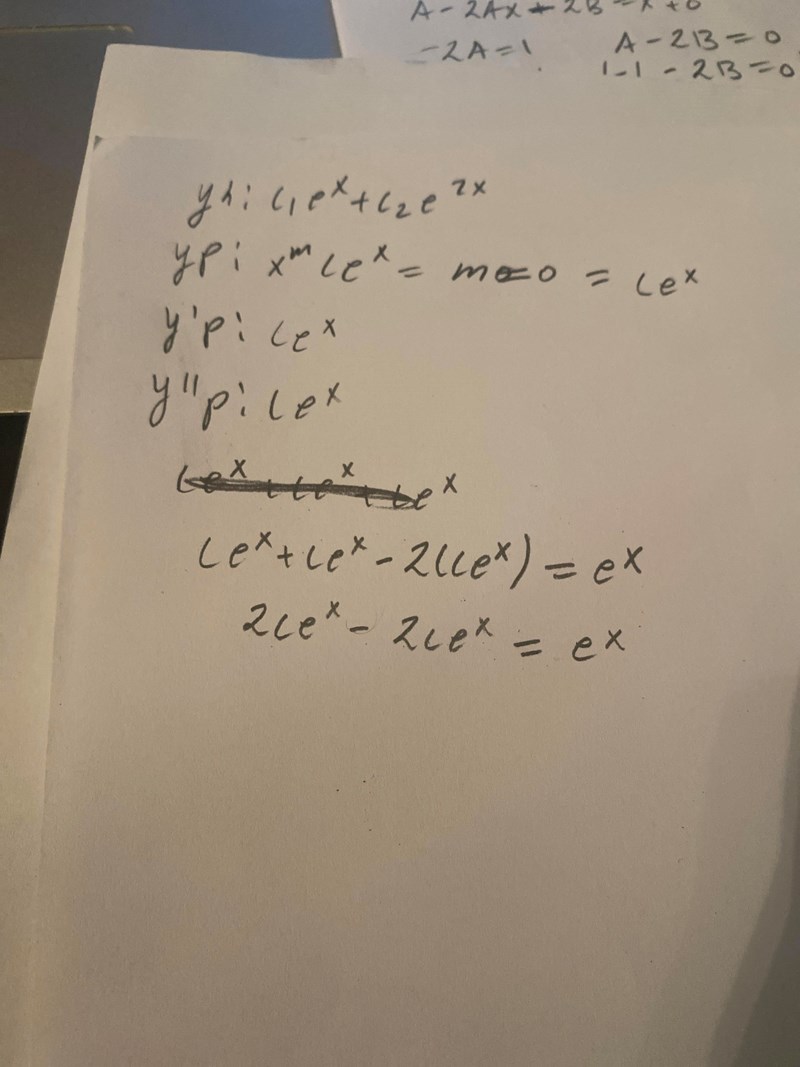 A - 2Ax + 2B = x + 0
-2A = 1 A - 2B = 0
1-1 - 2B = 0
yh: c₁eˣ + c₂e²ˣ
yp: xᵐceˣ = m=0 = ceˣ
y'p: ceˣ
y''p: ceˣ
ceˣ + ceˣ + ceˣ
ceˣ + ceˣ - 2(ceˣ) = eˣ
2ceˣ - 2ceˣ = eˣ